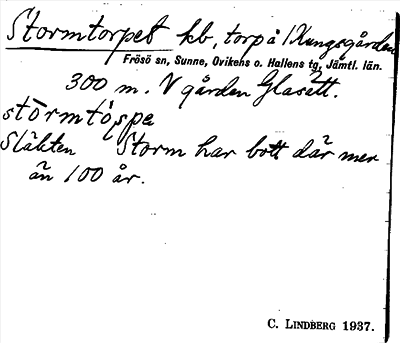 Stormtorpet kb, torp å Kungsgården
Frösö sn, Sunne, Ovikens o. Hallens tg, Jämtl. län.
300 m. V gården Glasätt.
stòrmtòrpe
Släkten Storm har bott där mer
än 100 år.
C. LINDBERG 1937.